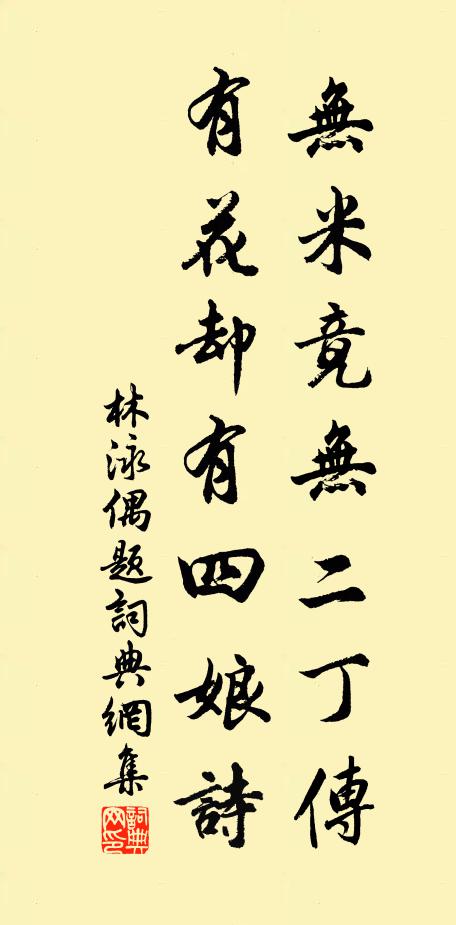 無米竟無二丁傳
有花却有四娘詩
林泳偶題詞典網集
詞典網印